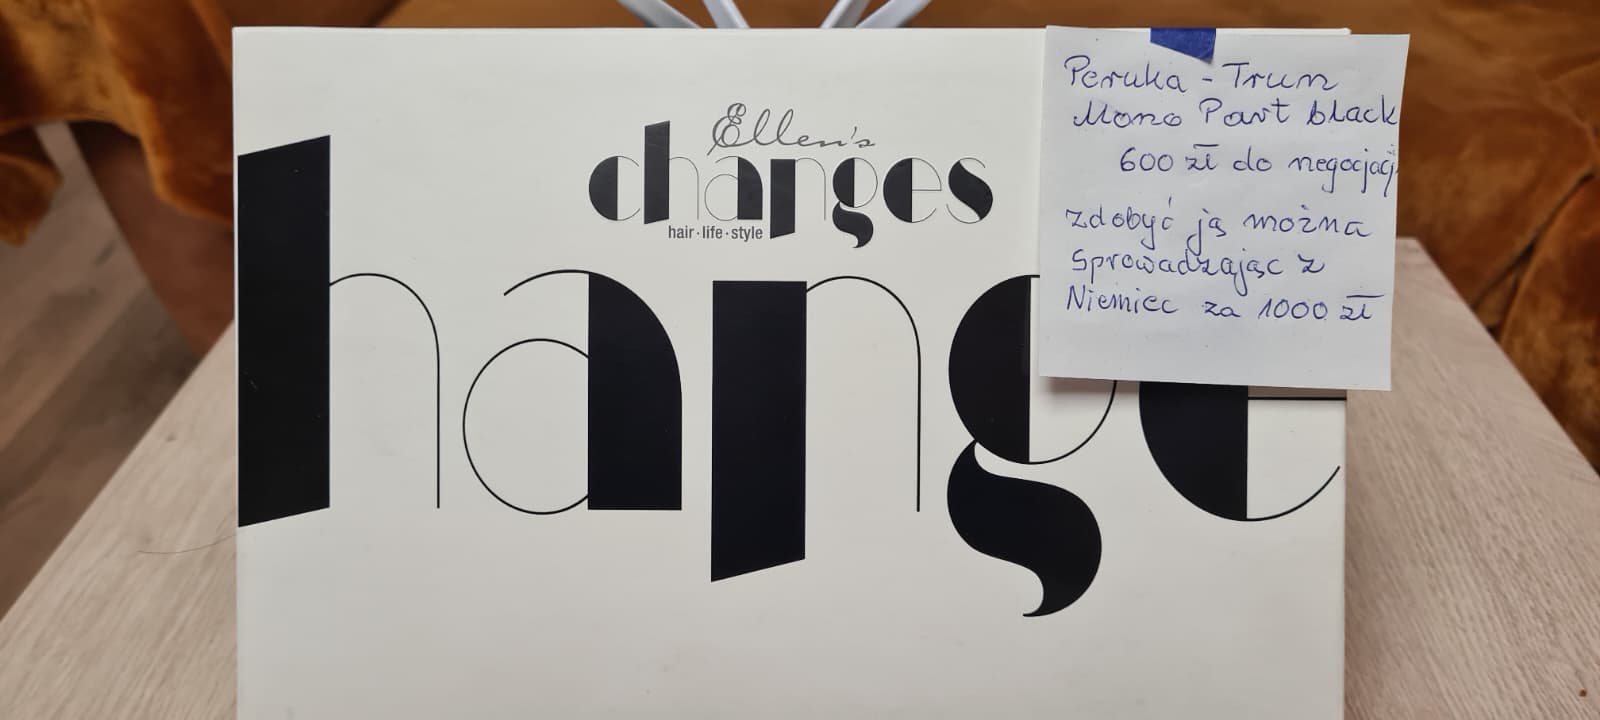 Ellen's
changes
hair·life·style
hange
Peruka - Trum
Mono Part black
600 zł do negocjacji
zdobyć ją można
sprowadzając z
Niemiec za 1000 zł